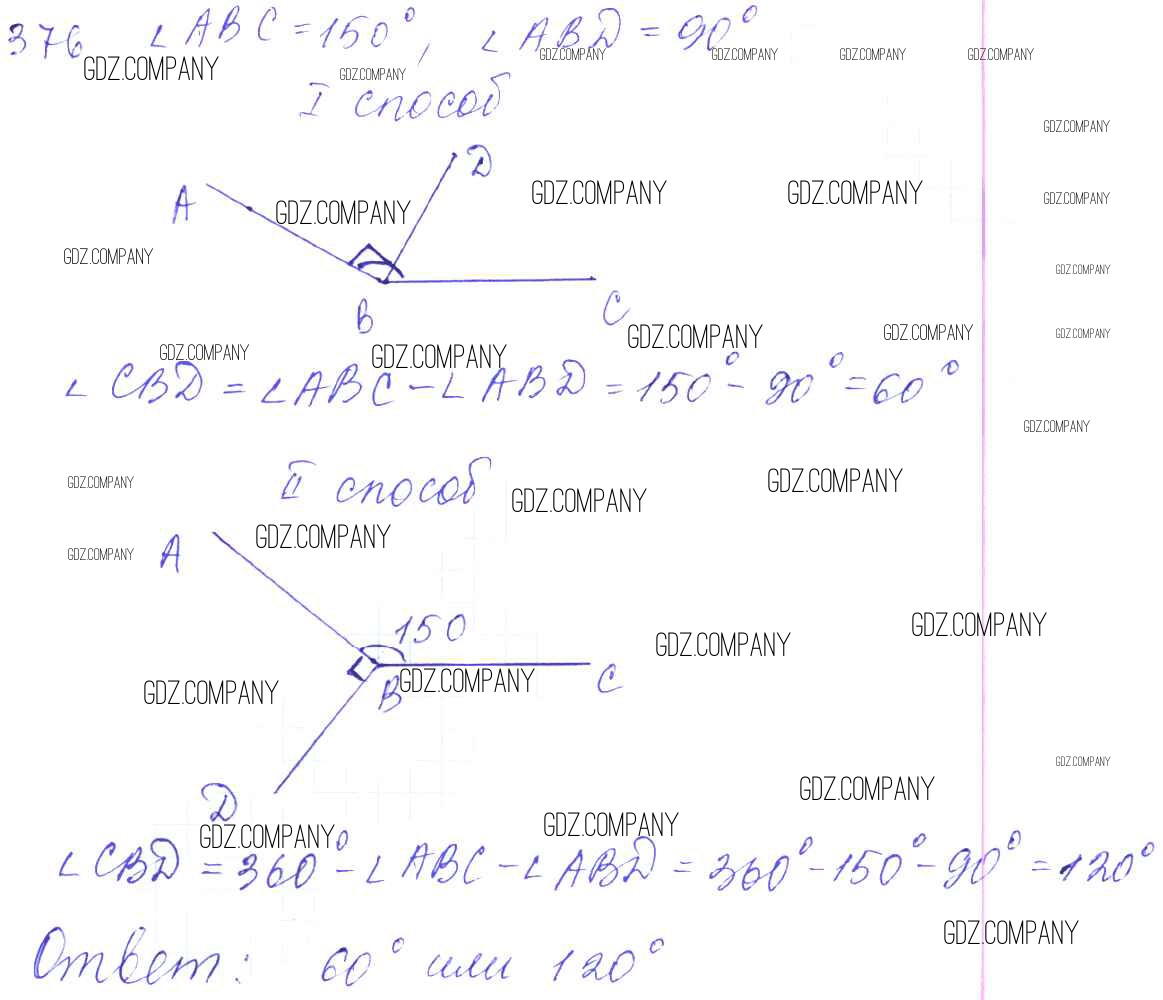 376 ∠ABC = 150°, ∠ABD = 90°
GDZ.COMPANY GDZ.COMPANY GDZ.COMPANY GDZ.COMPANY GDZ.COMPANY GDZ.COMPANY
I способ
GDZ.COMPANY
D
A GDZ.COMPANY GDZ.COMPANY GDZ.COMPANY GDZ.COMPANY
GDZ.COMPANY GDZ.COMPANY
B C
GDZ.COMPANY GDZ.COMPANY GDZ.COMPANY
GDZ.COMPANY GDZ.COMPANY
∠CBD = ∠ABC - ∠ABD = 150° - 90° = 60°
GDZ.COMPANY
II способ
GDZ.COMPANY GDZ.COMPANY GDZ.COMPANY
A GDZ.COMPANY
GDZ.COMPANY
150 GDZ.COMPANY GDZ.COMPANY
GDZ.COMPANY B GDZ.COMPANY C
GDZ.COMPANY
D GDZ.COMPANY
GDZ.COMPANY GDZ.COMPANY
∠CBD = 360° - ∠ABC - ∠ABD = 360° - 150° - 90° = 120°
GDZ.COMPANY
Ответ: 60° или 120°